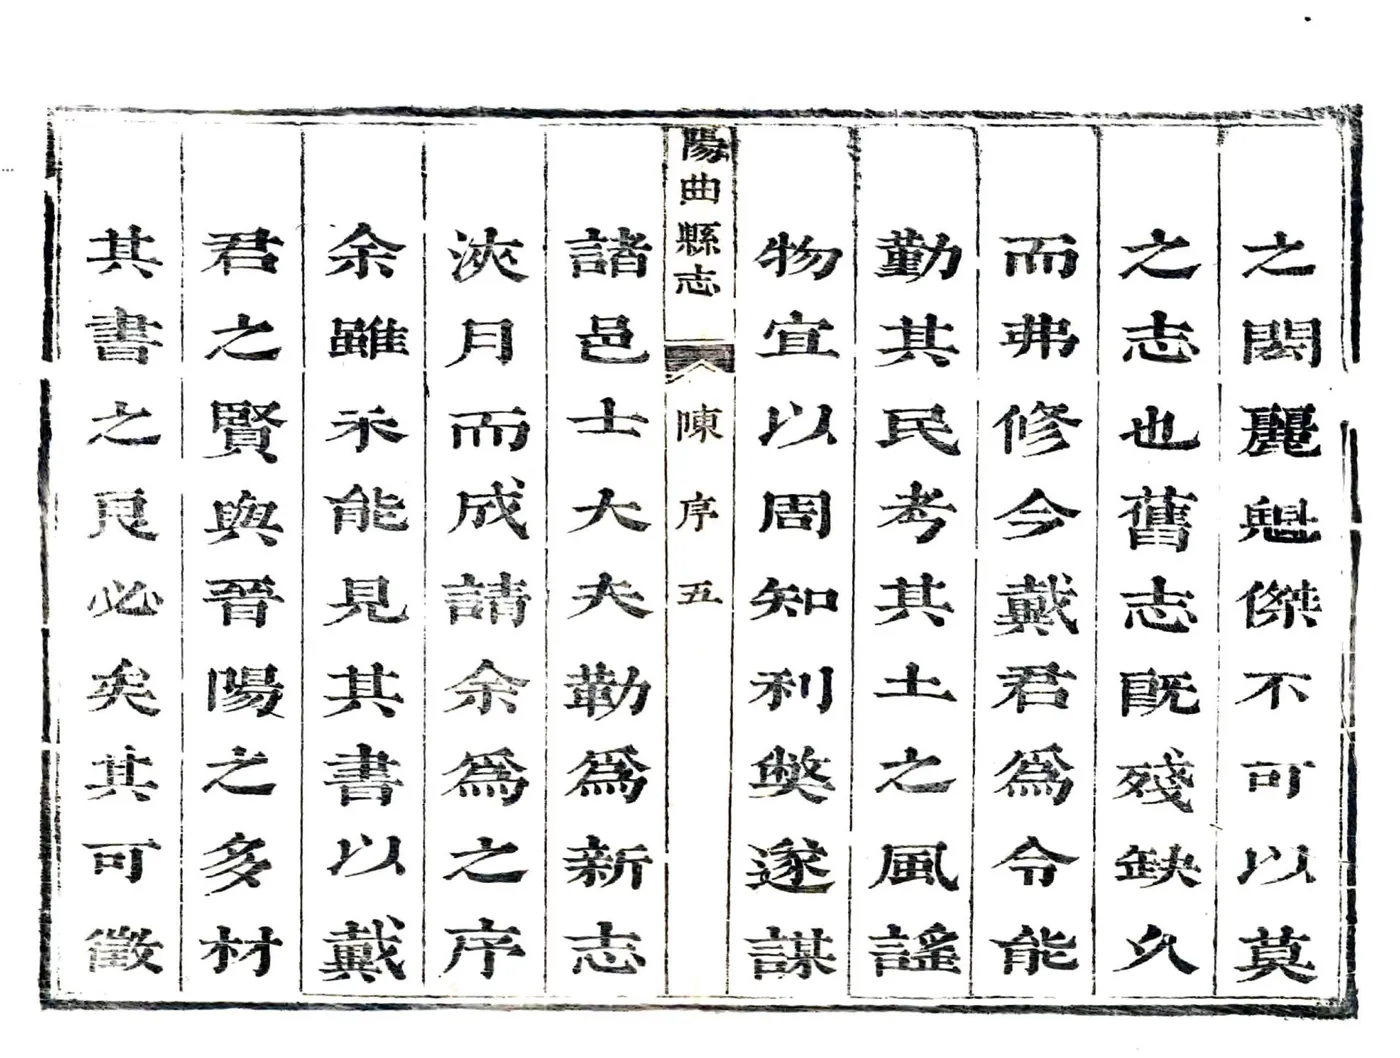 之閎麗魁傑不可以莫
之志也舊志既殘缺久
而弗修今戴君為令能
勤其民考其土之風謠
物宜以周知利獘遂謀
陽曲縣志
陳序
五
諸邑士大夫勒為新志
浹月而成請余為之序
余雖未能見其書以戴
君之賢與晉陽之多材
其書之良必矣其可徵